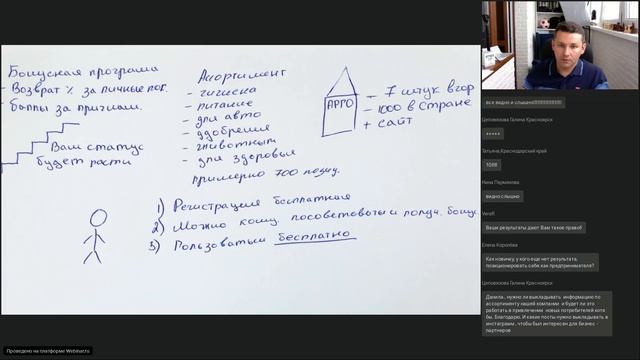 Бонусная програма
- Возврат % за личные пок.
- баллы за приглаш.
Ваш статус
будет расти
Асортимент
- гигиена
- питание
- для авто
- удобрения
- животным
- для здоровья
примерно 700 позиц.
АРГО
- 7 штук в гор
- 1000 в стране
+ сайт
1) Регистрация бесплатная
2) Можно кому. посоветовать и получ. бонус
3) Пользоваться бесплатно
все видно и слышно!!!!!!!!!!!!!!
Цеповязова Галина Красноярск
+++++
Татьяна,Краснодарский край
Нина Пермякова
видно слышно
VereR
Ваши результаты дают Вам такое право!!
Елена Королёва
Как новичку, у кого еще нет результата,
позиционировать себя как предпринимателя?
Цеповязова Галина Красноярск
Данила , нужно ли выкладывать информацию по
ассортименту нашей компании и будет ли это
работать в привлечении новых потребителей хотя
бы. Благодарю. И какие посты нужно выкладывать в
инстаграмм , чтобы был интересен для бизнес -
партнеров
Проведено на платформе Webinar.ru